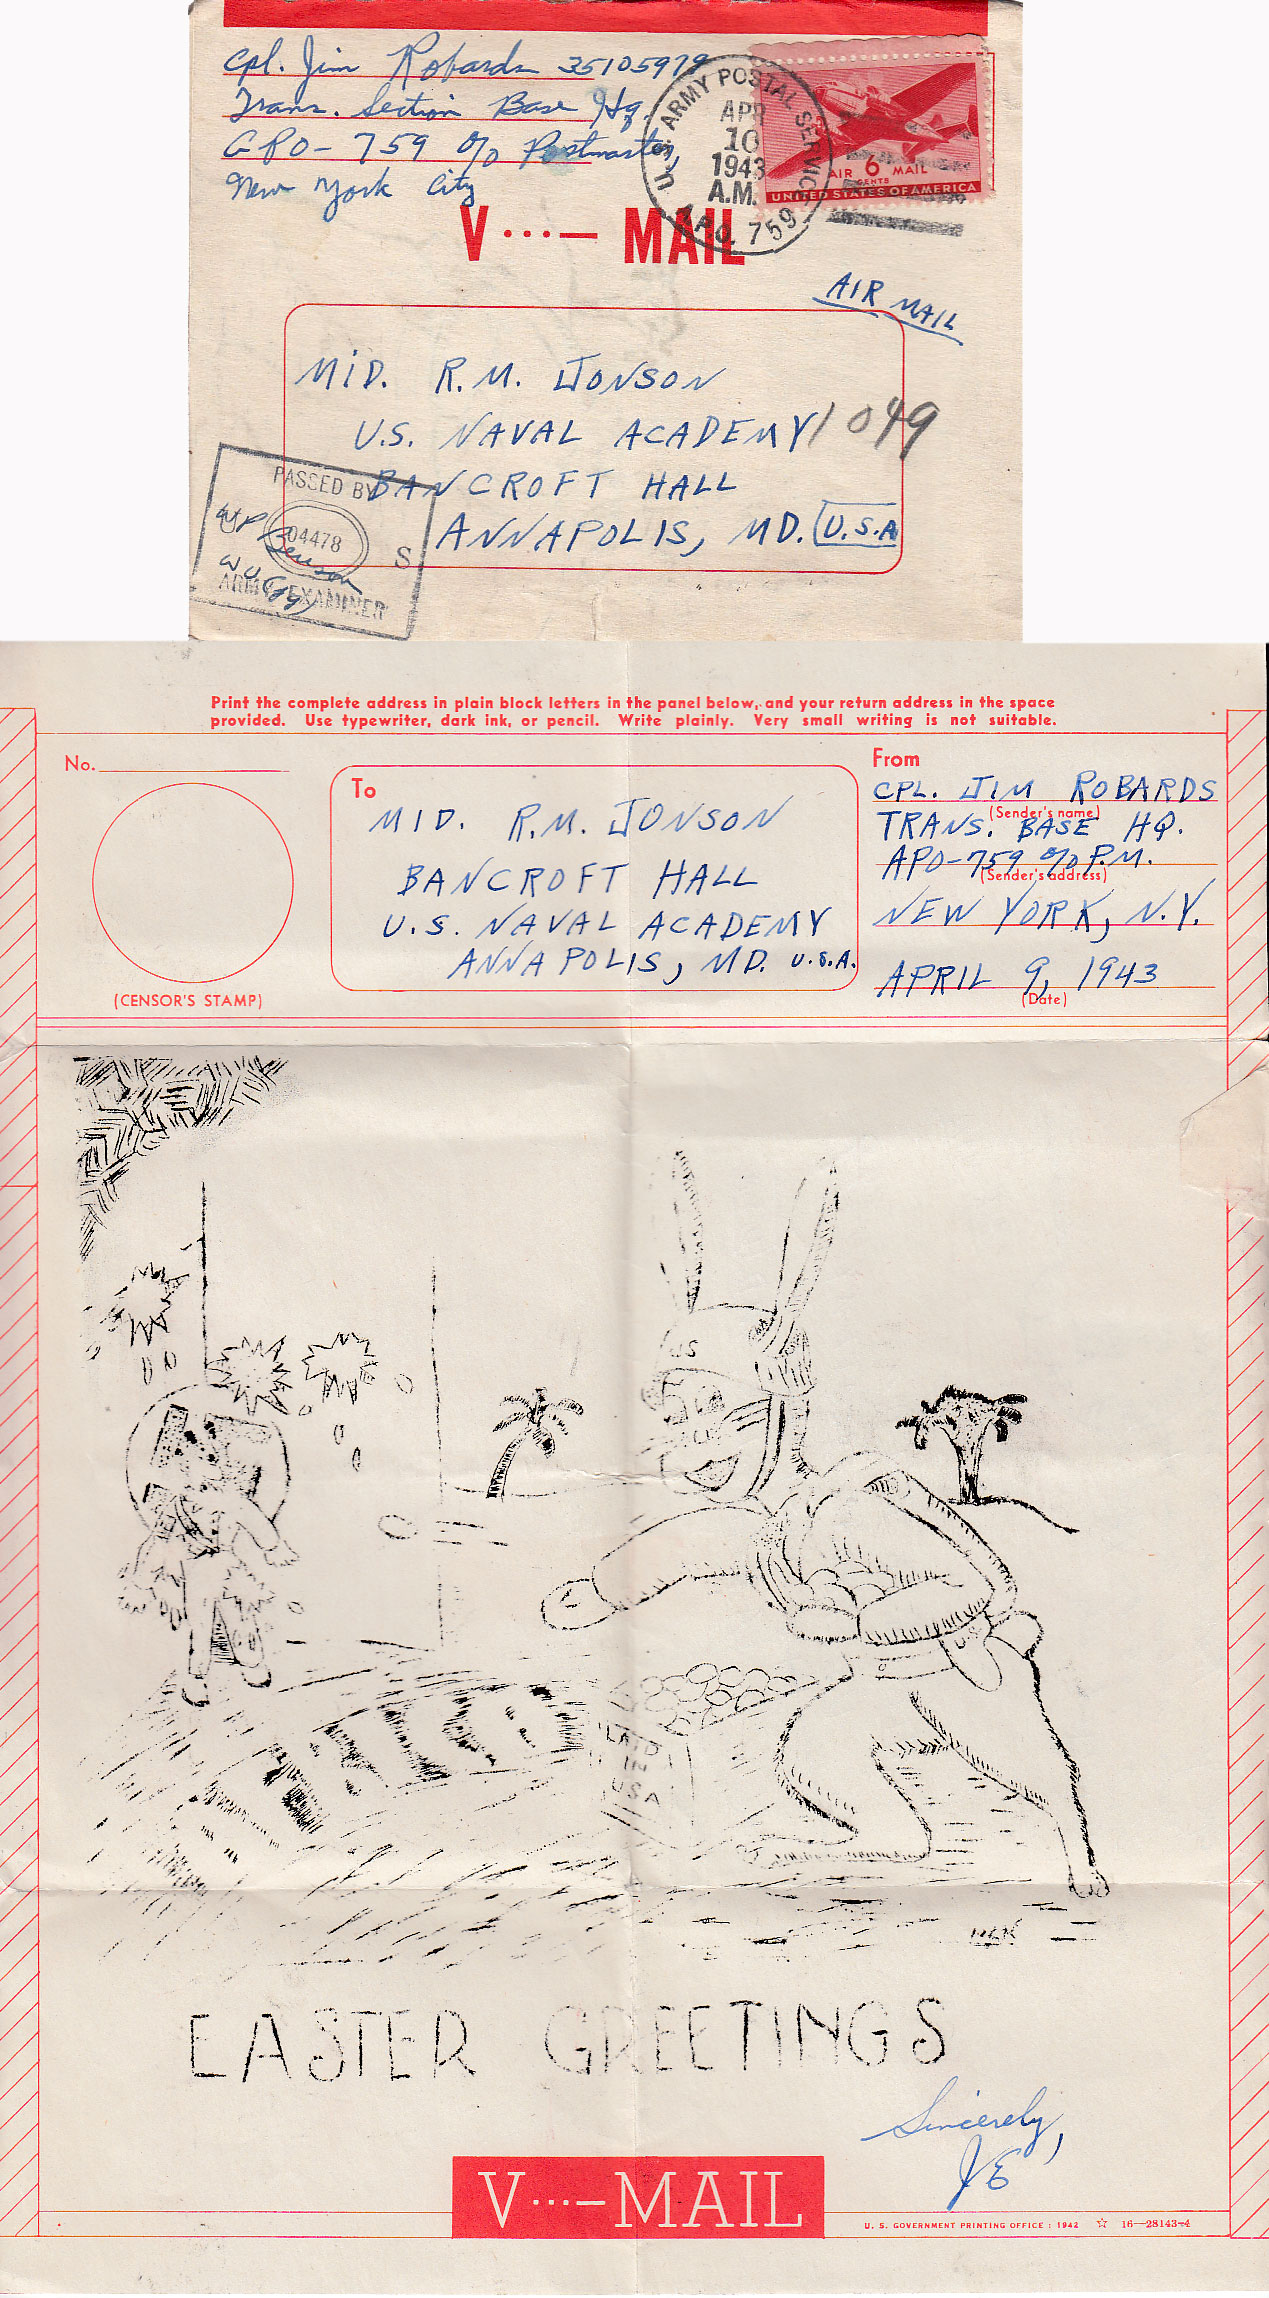 Cpl. Jim Robards 35105979
Trans. Section Base Hq.
APO - 759 c/o Postmaster,
New York City
U.S. ARMY POSTAL SERVICE
APR
10
1943
A.M.
A.P.O. 759
AIR 6 MAIL
CENTS
UNITED STATES OF AMERICA
V ···— MAIL
AIR MAIL
MID. R.M. JONSON
U.S. NAVAL ACADEMY 1049
BANCROFT HALL
ANNAPOLIS, MD. U.S.A
PASSED BY
04478
S
ARMY EXAMINER
Print the complete address in plain block letters in the panel below, and your return address in the space
provided. Use typewriter, dark ink, or pencil. Write plainly. Very small writing is not suitable.
No.
(CENSOR'S STAMP)
To
MID. R.M. JONSON
BANCROFT HALL
U.S. NAVAL ACADEMY
ANNAPOLIS, MD. U.S.A.
From
CPL. JIM ROBARDS
(Sender's name)
TRANS. BASE HQ.
APO-759 c/o P.M.
(Sender's address)
NEW YORK, N.Y.
APRIL 9, 1943
(Date)
US
US
LAID
IN
USA
EASTER GREETINGS
Sincerely,
V ···— MAIL
U. S. GOVERNMENT PRINTING OFFICE : 1942 ☆ 16—28143-4